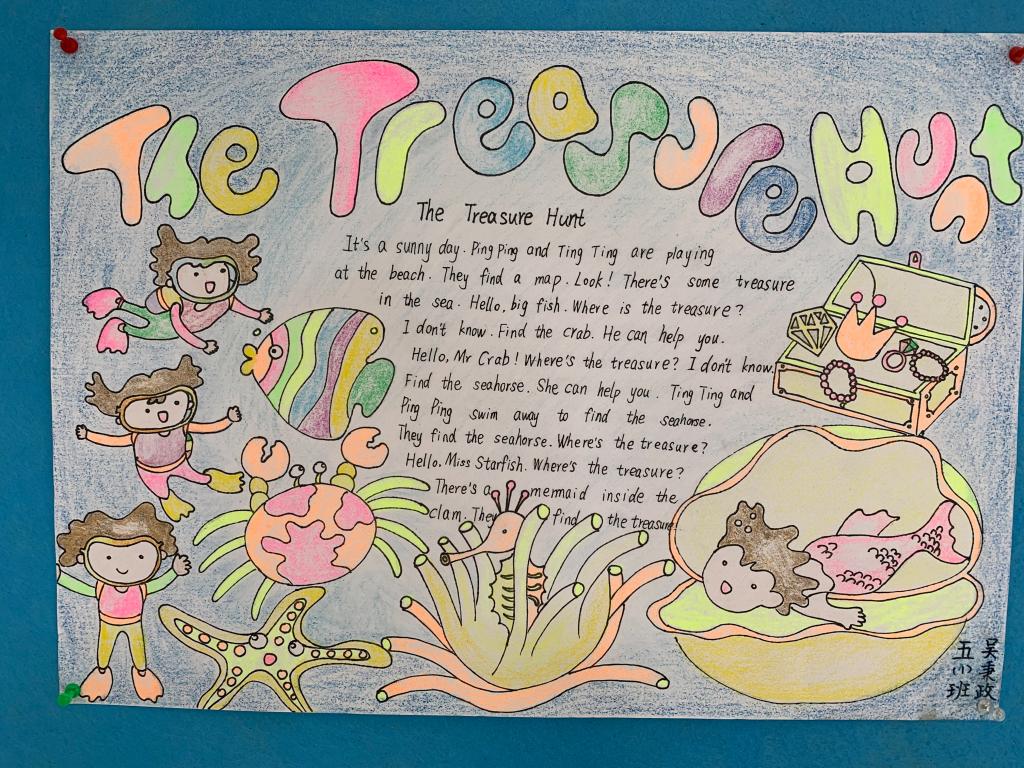 The Treasure Hunt
The Treasure Hunt
It's a sunny day. Ping Ping and Ting Ting are playing
at the beach. They find a map. Look! There's some treasure
in the sea. Hello, big fish. Where is the treasure?
I don't know. Find the crab. He can help you.
Hello, Mr Crab! Where's the treasure? I don't know.
Find the seahorse. She can help you. Ting Ting and
Ping Ping swim away to find the seahorse.
They find the seahorse. Where's the treasure?
Hello, Miss Starfish. Where's the treasure?
There's a mermaid inside the
clam. They find the treasure!
吴秉政
五(1)班